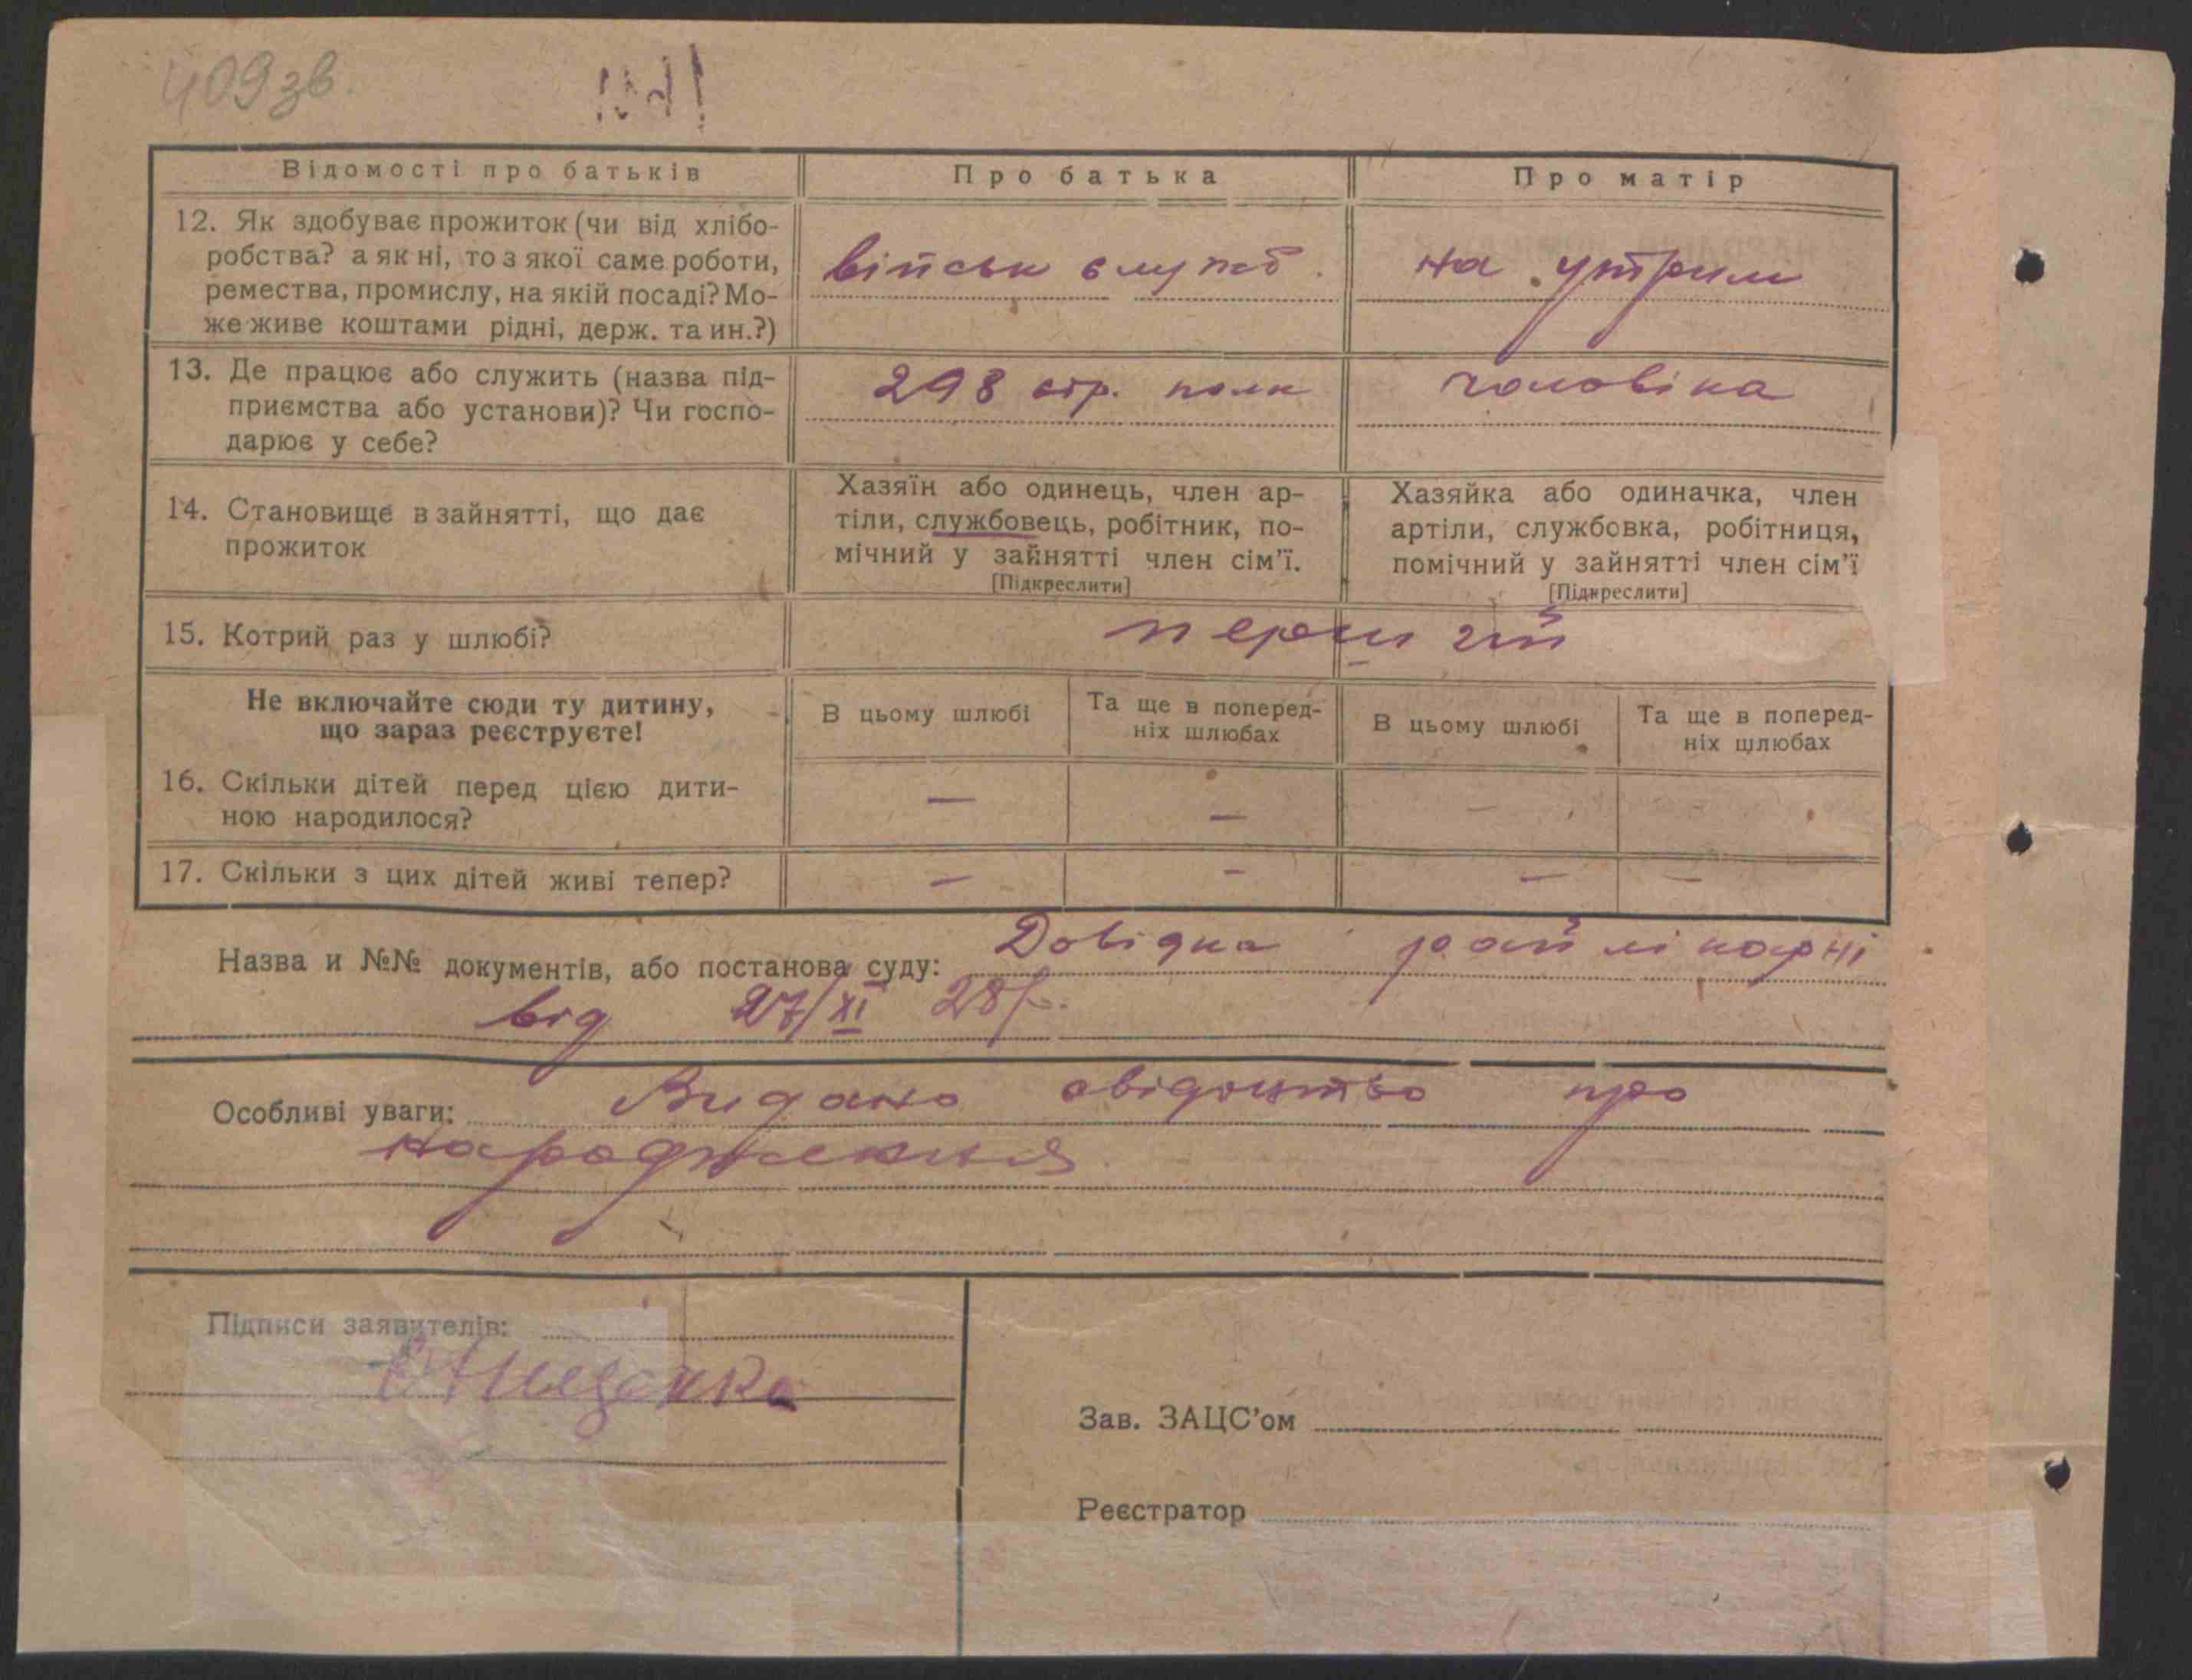 409 зв.
Відомості про батьків
Про батька
Про матір
12. Як здобуває прожиток (чи від хлібо-
робства? а як ні, то з якої саме роботи,
ремества, промислу, на якій посаді? Мо-
же живе коштами рідні, держ. та ин.?)
військ служб.
на утрим
13. Де працює або служить (назва під-
приємства або установи)? Чи госпо-
дарює у себе?
298 стр. полк
чоловіка
14. Становище в зайнятті, що дає
прожиток
Хазяїн або одинець, член ар-
тіли, службовець, робітник, по-
мічний у зайнятті член сім'ї.
[Підкреслити]
Хазяйка або одиначка, член
артіли, службовка, робітниця,
помічний у зайнятті член сім'ї
[Підкреслити]
15. Котрий раз у шлюбі?
перший
Не включайте сюди ту дитину,
що зараз реєструєте!
В цьому шлюбі
Та ще в поперед-
ніх шлюбах
В цьому шлюбі
Та ще в поперед-
ніх шлюбах
16. Скільки дітей перед цією дити-
ною народилося?
— — — –
17. Скільки з цих дітей живі тепер?
— – — –
Назва и №№ документів, або постанова суду: Довідка райлікарні
від 27/XI 28р.
Особливі уваги: Видано свідоцтво про
народження
Підписи заявителів:
Зав. ЗАЦС'ом
Реєстратор